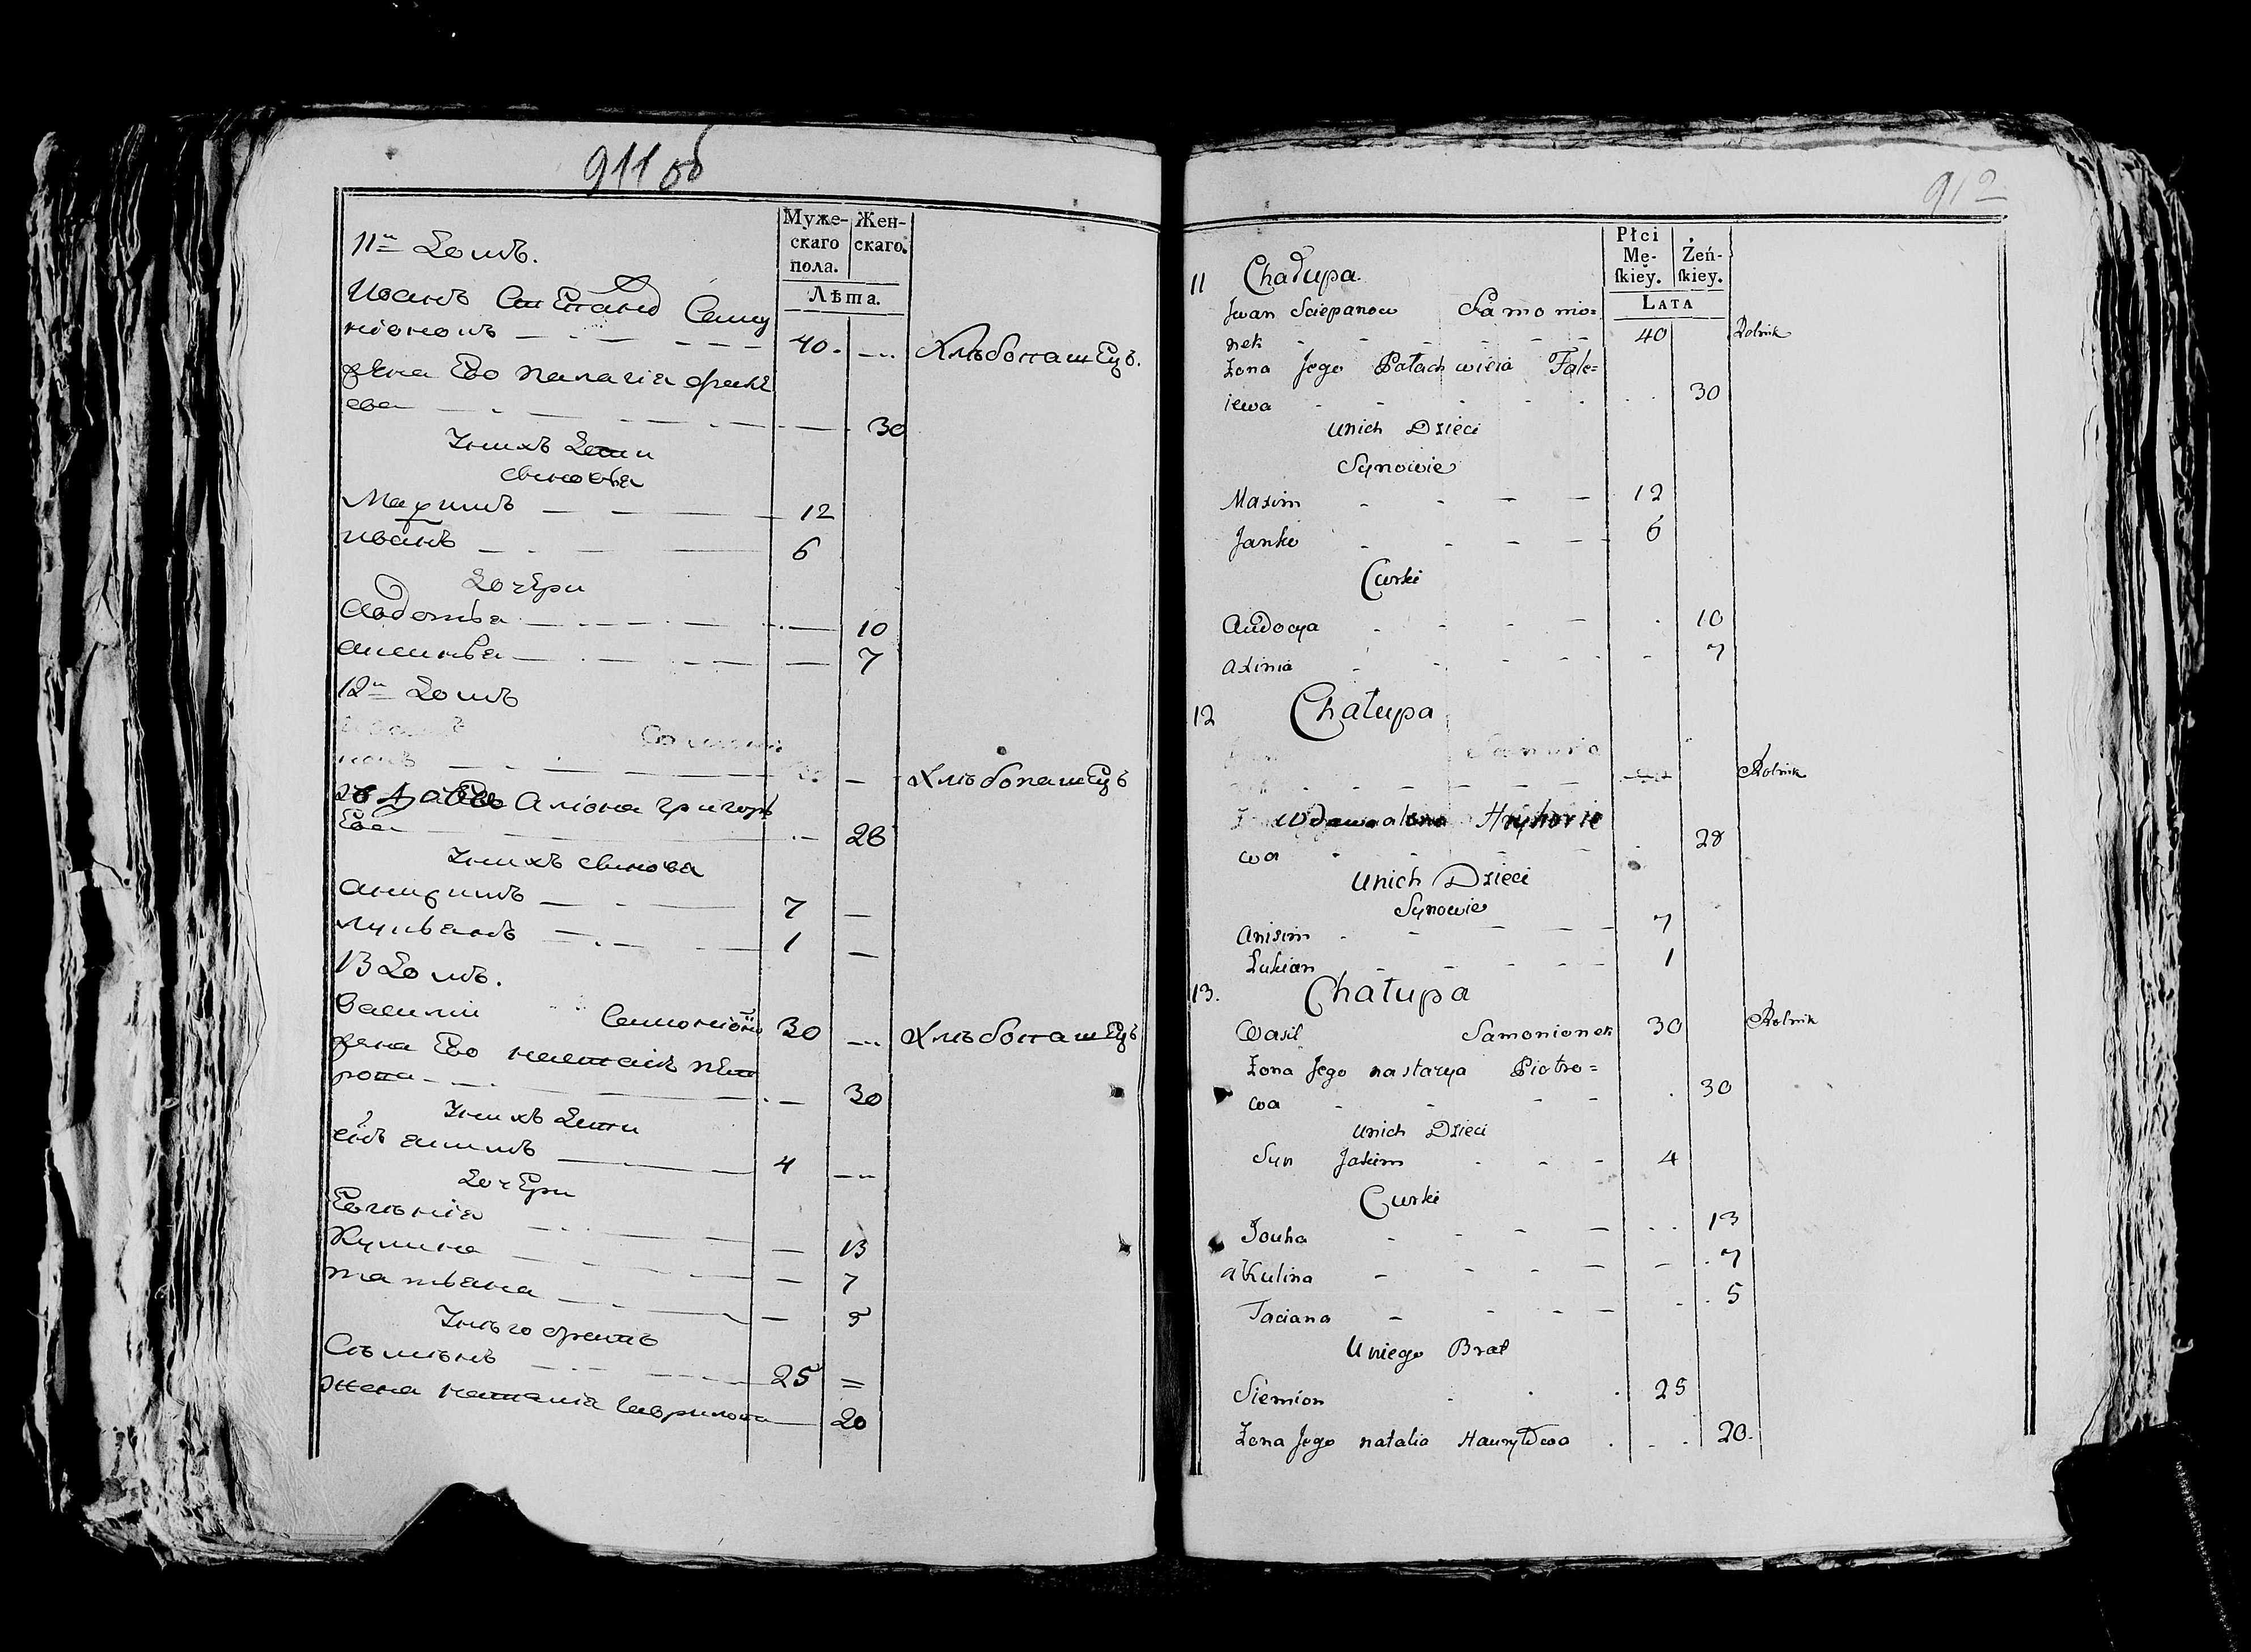 911 об
Муже-
скаго
пола.
Жен-
скаго.
Лѣта.
11й Домъ.
Иванъ Степановъ Саму
ніонокъ 40. Хлѣбопашецъ.
жена Ево Палагіа
ева 30
У нихъ дети
сыновья
Махимъ 12
Иванъ 6
Дочери
Авдотья 10
7
12й Домъ
нокъ — Хлѣбопашецъ
Вдова Аліона Григорь
Ева 28
У нихъ сынова
Анисимъ 7 —
Лукьянъ 1 —
13 Домъ.
Василий Самоніон 30 — Хлѣбопашецъ
жена Ево Настасія Пет
рова 30
У нихъ дети
снъ акимъ 4 —
Дочери
Евгѣніа — 13
Кулина — 7
татьяна — 5
У нѣго братъ
Сѣмѣнъ 25 =
жена наталіа Гаврилова 20
912
Płci
Mę-
ſkiey.
Żeń-
ſkiey.
LATA
11 Chałupa.
Jwan Sciepanow Samonio=
nek 40 Rolnik
Zona Jego Pałachwieia Fale=
iewa 30
unich Dzieci
Synowie
Maxim 12
Janko 6
Curki
Audocya 10
axinia 7
12 Chałupa
Samonio
Rolnik
Wdowa alona Hryhorie
wa 28
unich Dzieci
Synowie
Anisim 7
Lukian 1
13. Chałupa
Wasil Samonionek 30 Rolnik
Zona Jego nastazya Piotro=
wa 30
unich Dzieci
Syn Jakim 4
Curki
Jouha 13
akulina 7
Taciana 5
Uniego Brat
Siemion 25
Zona Jego natalia Hauryłowa 20.